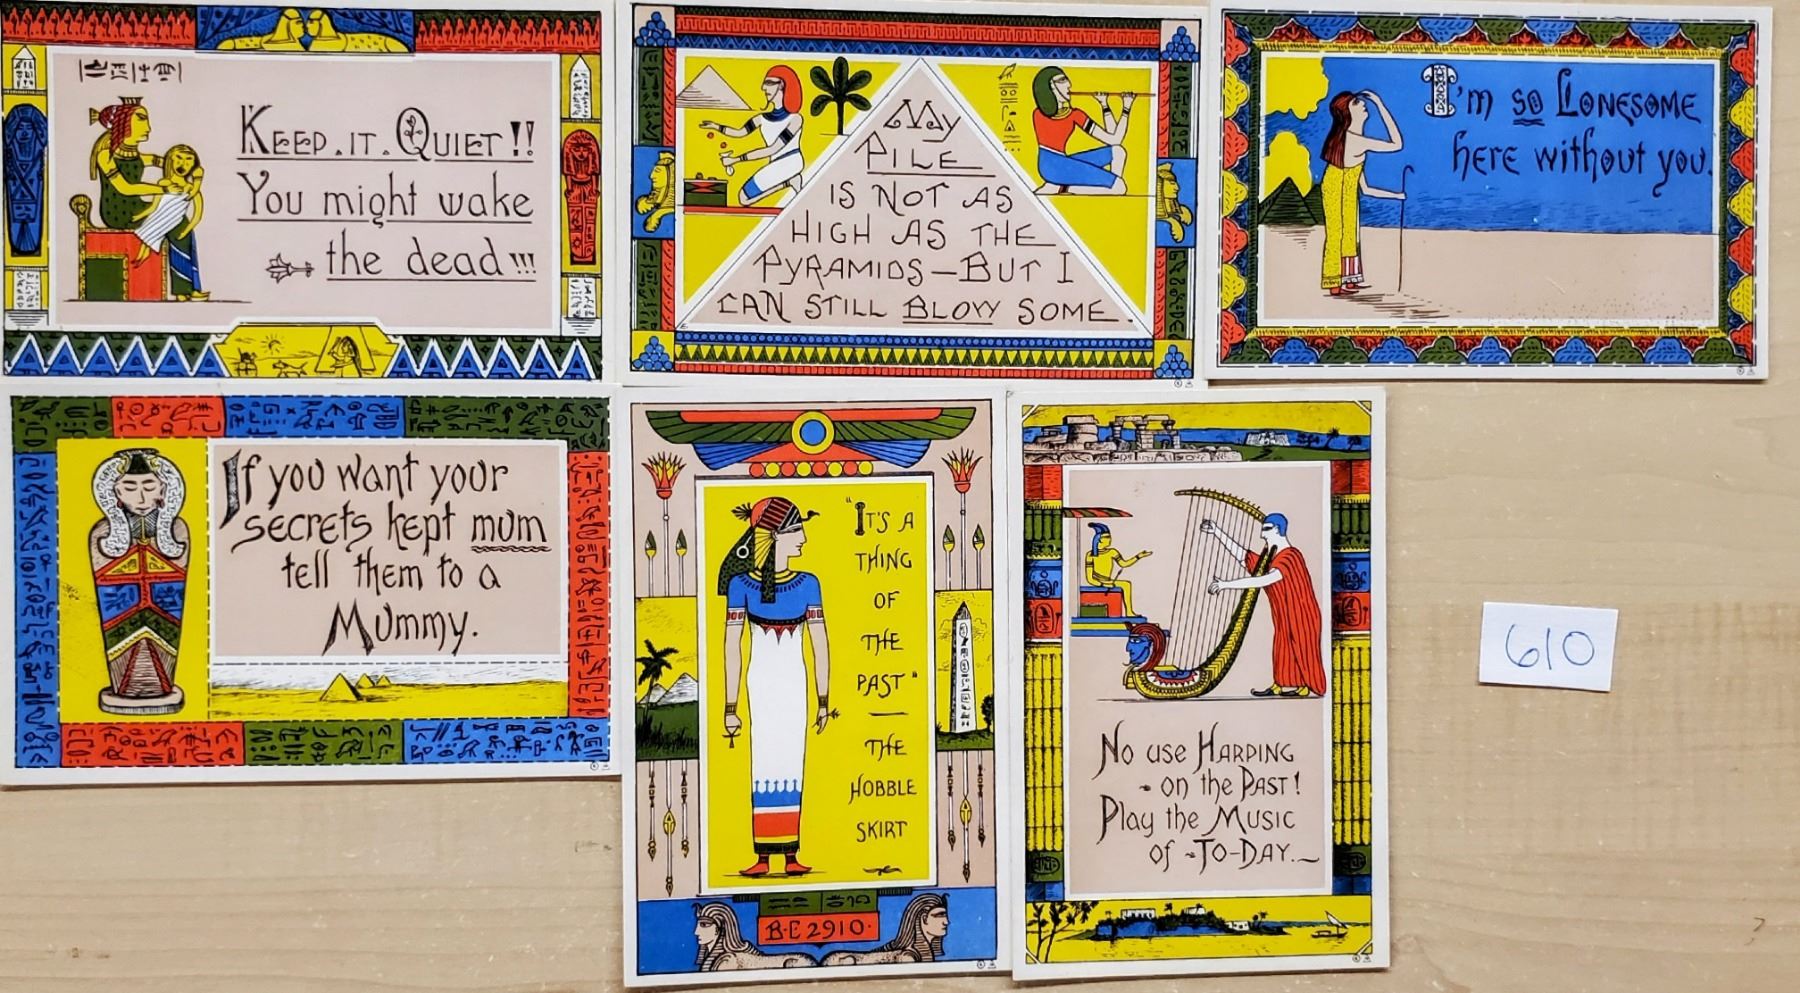 KEEP.IT.QUIET!!
You might wake
the dead!!!
My
PILE
IS NOT AS
HIGH AS THE
PYRAMIDS—BUT I
CAN STILL BLOW SOME.
I'm so LONESOME
here without you.
If you want your
secrets kept mum
tell them to a
Mummy.
"IT'S A
THING
OF
THE
PAST"
—THE
HOBBLE
SKIRT
B.C 2910.
No use HARPING
- on the PAST!
Play the MUSIC
of -TO-DAY.
610